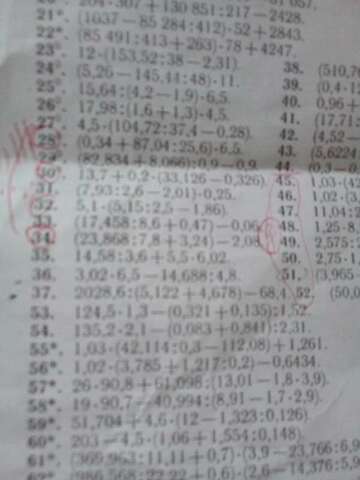 204·307+130 851:217−2428.
21°. (1037−85 284:412)·52+2843.
22°. (85 491:413+263)·78+4247.
23°. 12·(153,52:38−2,31).
24°. (5,26−145,44:48)·11.
25°. 15,64:(4,2−1,9)·6,5.
26°. 17,98:(1,6+1,3)·4,5.
27°. 4,5·(104,72:37,4−0,28).
28°. (0,34+87,04:25,6)·6,5.
29°. (82,834+8,066):0,9−0,9.
30°. 13,7+0,2·(33,126−0,326).
31. (7,93:2,6−2,01)·0,25.
32. 5,1·(5,15:2,5−1,86).
33. (17,458:8,6+0,47)−0,06
34. (23,868:7,8+3,24)−2,08
35. 14,58:3,6+5,5·6,02.
36. 3,02·6,5−14,688:4,8.
37. 2028,6:(5,122+4,678)−68,4
53. 124,5·1,3−(0,321+0,135):1,52.
54. 135,2·2,1−(0,083+0,841):2,31.
55*. 1,03·(42,114:0,3−112,08)+1,261.
56*. 1,02·(3,785+1,217:0,2)−0,6434.
57*. 26·90,8+61,098:(13,01−1,8·3,9).
58*. 19·90,7−40,994:(8,91−1,7·2,9).
59*. 51,704+4,6·(12−1,323:0,126).
60*. 203−4,5·(1,06+1,554:0,148).
61*. (369,963:11,11+0,7)·(3,9−23,766:6,9
62*. (986,568:22,22+0,6)·(2,6−14,376:5,9
38. (510,76
39. (0,4·12
40. 0,96+
41. (17,71
42. (4,52−
43. (5,6224
44. (0,3−0
45. 1,03·(4
46. 1,02·(3
47. 11,04:
48. 1,25·8
49. 2,575:
50. 2,75·1
51. (3,965
52. (50,0